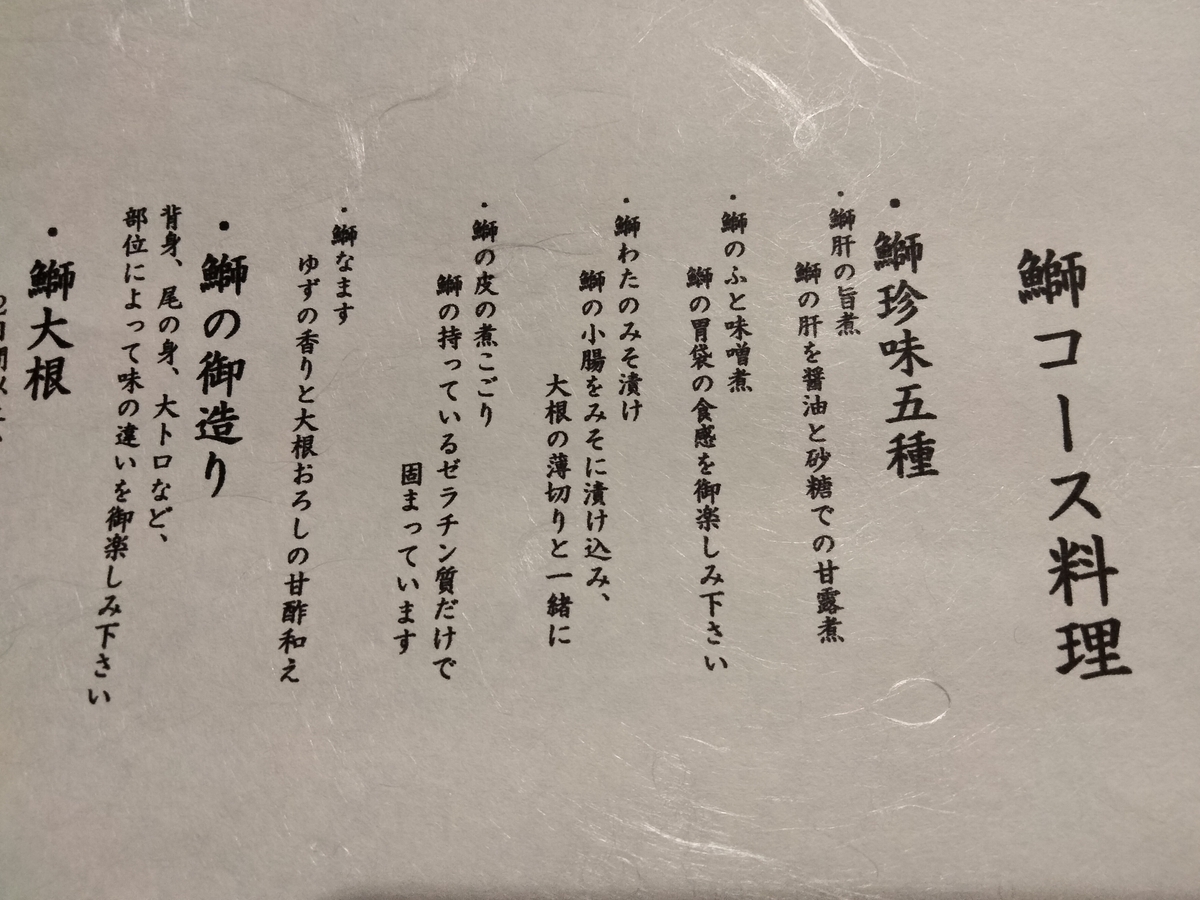 鰤コース料理
・鰤珍味五種
・鰤肝の旨煮
鰤の肝を醤油と砂糖での甘露煮
・鰤のふと味噌煮
鰤の胃袋の食感を御楽しみ下さい
・鰤わたのみそ漬け
鰤の小腸をみそに漬け込み、
大根の薄切りと一緒に
・鰤の皮の煮こごり
鰤の持っているゼラチン質だけで
固まっています
・鰤なます
ゆずの香りと大根おろしの甘酢和え
・鰤の御造り
背身、尾の身、大トロなど、
部位によって味の違いを御楽しみ下さい
・鰤大根